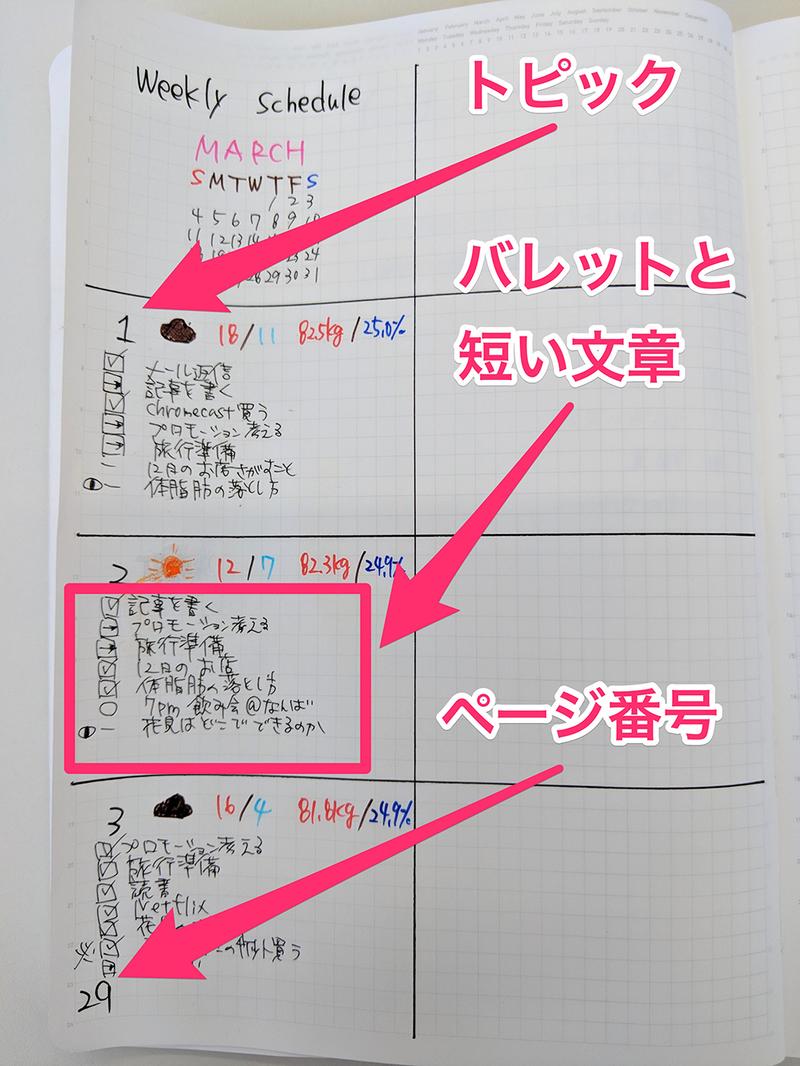 January February March April May June July August September October November December
Monday Tuesday Wednesday Thursday Friday Saturday Sunday
Weekly Schedule
トピック
MARCH
S M T W T F S
1 2 3
4 5 6 7 8 9 10
11 12 13 14
24
28 29 30 31
バレットと
短い文章
1 18/11 82.5kg/25.0%
メール返信
記事を書く
chromecast買う
プロモーション考える
旅行準備
12日のお店さがすこと
体脂肪の落とし方
2 12/7 82.3kg/24.9%
記事を書く
プロモーション考える
旅行準備
12日のお店
体脂肪の落とし方
7pm 飲み会@なんば
花見はどこでできるのか
ページ番号
3 16/4 81.8kg/24.9%
プロモーション考える
旅行準備
読書
Netflix
花
買う
29